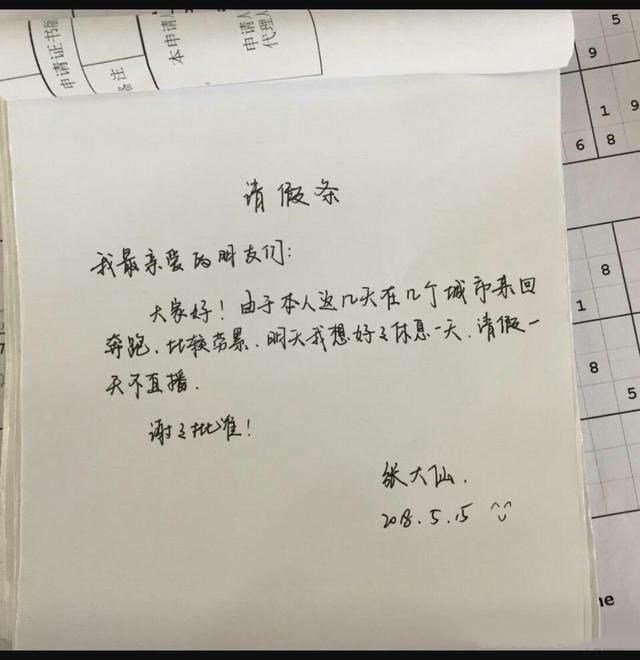 申请证书编
备注
本申请人
申请人
代理人
5
9
1 9
6 8
请假条
我最亲爱的朋友们:
大家好!由于本人这几天在几个城市来回
奔跑.比较劳累.明天我想好々休息一天.请假一
天不直播.
谢々批准!
张大仙.
2018.5.15
8
1
8
5
7
ne